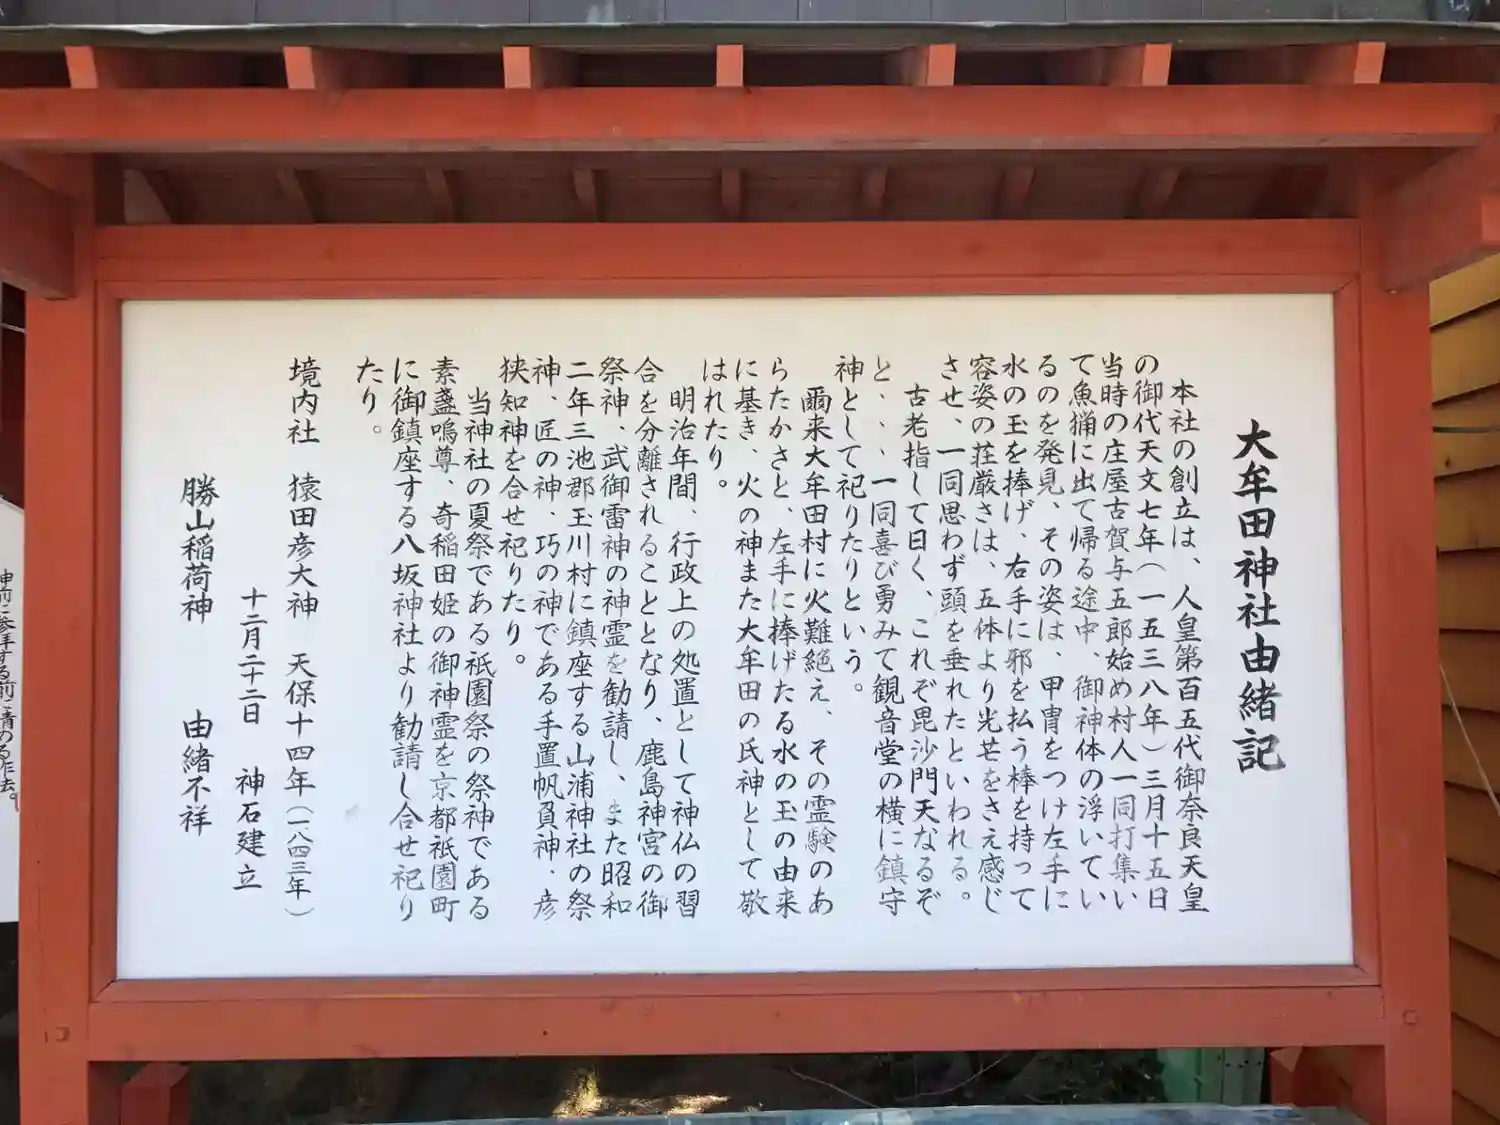 大牟田神社由緒記
本社の創立は、人皇第百五代御奈良天皇
の御代天文七年(一五三八年)三月十五日
当時の庄屋古賀与五郎始め村人一同打集い
て魚猟に出て帰る途中、御神体の浮いてい
るのを発見、その姿は、甲冑をつけ左手に
水の玉を捧げ、右手に邪を払う棒を持って
容姿の荘厳さは、五体より光芒をさえ感じ
させ、一同思わず頭を垂れたといわれる。
古老指して曰く、これぞ毘沙門天なるぞ
と、、、一同喜び勇みて観音堂の横に鎮守
神として祀りたりという。
爾来大牟田村に火難絶え、その霊験のあ
らたかさと、左手に捧げたる水の玉の由来
に基き、火の神また大牟田の氏神として敬
はれたり。
明治年間、行政上の処置として神仏の習
合を分離されることとなり、鹿島神宮の御
祭神、武御雷神の神霊を勧請し、また昭和
二年三池郡玉川村に鎮座する山浦神社の祭
神、匠の神、巧の神である手置帆負神・彦
狭知神を合せ祀りたり。
当神社の夏祭である祇園祭の祭神である
素盞嗚尊、奇稲田姫の御神霊を京都祇園町
に御鎮座する八坂神社より勧請し合せ祀り
たり。
境内社 猿田彦大神 天保十四年(一八四三年)
十二月二十二日 神石建立
勝山稲荷神 由緒不祥